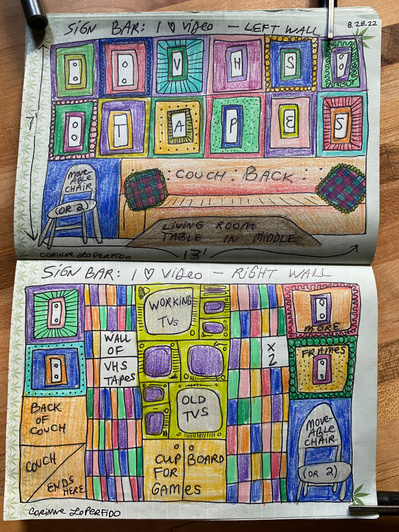 SIGN BAR: I ♡ VIDEO - LEFT WALL
8.28.22
V H S
T A P E S
7'
MOVE-
ABLE
CHAIR
(OR 2)
COUCH BACK
LIVING ROOM
TABLE IN MIDDLE
CORINNE LOPERFIDO
13'
SIGN BAR: I ♡ VIDEO - RIGHT WALL
WORKING
TVs
MORE
FRAMES
WALL
OF
VHS
TAPES
X
2
OLD
TVS
BACK
OF
COUCH
COUCH
ENDS
HERE
CUPBOARD
FOR
GAMES
MOVE-
ABLE
CHAIR
(OR 2)
CORINNE LOPERFIDO